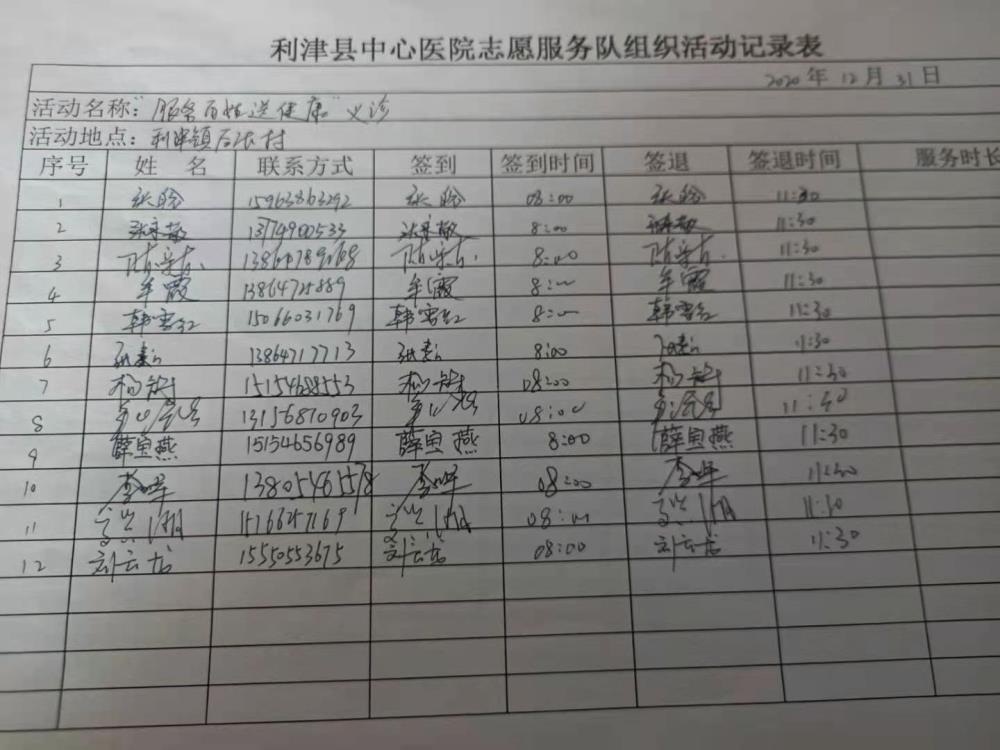 利津县中心医院志愿服务队组织活动记录表
2020年12月31日
活动名称："服务百姓送健康"义诊
活动地点：利津镇石张村
序号 姓名 联系方式 签到 签到时间 签退 签退时间 服务时长
1 15963863292 08:00 11:30
2 13779900533 8:00 11:30
3 8:00 11:30
4 牟霞 13864725889 牟霞 8:00 牟霞 11:30
5 韩雪红 15066031769 韩雪红 8:00 韩雪红 11:30
6 13864717713 8:00 11:30
7 杨敏 15154688553 杨敏 08:00 杨敏 11:30
8 13156810903 08:00 11:30
9 薛宝燕 15154656989 薛宝燕 8:00 薛宝燕 11:30
10 李晔 13805465578 李晔 08:00 李晔 11:30
11 08:00 11:30
12 刘云龙 15550553675 刘云龙 08:00 刘云龙 11:30